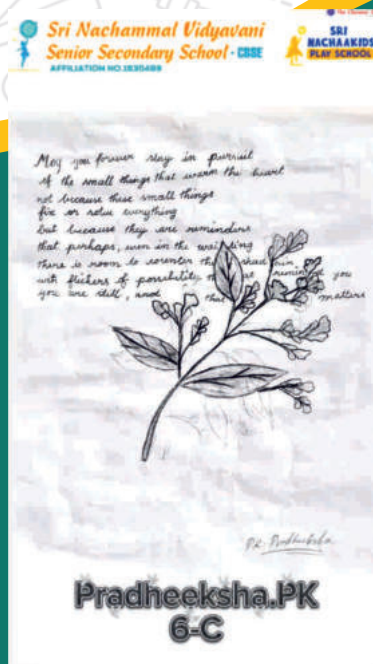 Sri Nachammal Vidyavani
Senior Secondary School - CBSE
AFFILIATION NO.1930499
SRI
NACHAAKIDS
PLAY SCHOOL
May you forever stay in pursuit
of the small things that warm the heart
not because these small things
fix or solve everything
but because they are reminders
that perhaps, even in the
there is room to
with flickers of possibility
you
you are still, and that matters
Pradheeksha.PK
6-C